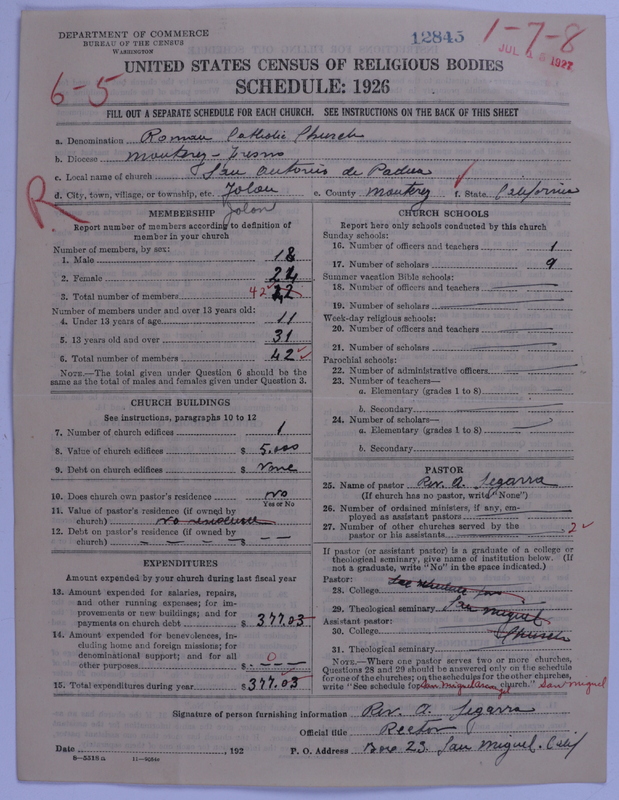 DEPARTMENT OF COMMERCE
BUREAU OF THE CENSUS
WASHINGTON
12845
1-7-8
JUL 1927
6-5
UNITED STATES CENSUS OF RELIGIOUS BODIES
SCHEDULE: 1926
FILL OUT A SEPARATE SCHEDULE FOR EACH CHURCH. SEE INSTRUCTIONS ON THE BACK OF THIS SHEET
a. Denomination Roman Catholic Church
b. Diocese Monterey-Fresno
c. Local name of church San Antonio de Padua
d. City, town, village, or township, etc. Jolon e. County Monterey f. State California
R
Jolon
MEMBERSHIP
Report number of members according to definition of
member in your church
Number of members, by sex:
1. Male 18
2. Female 24
3. Total number of members 42
Number of members under and over 13 years old:
4. Under 13 years of age 11
5. 13 years old and over 31
6. Total number of members 42
NOTE.—The total given under Question 6 should be
same as the total of males and females given under Question 3.
CHURCH BUILDINGS
See instructions, paragraphs 10 to 12
7. Number of church edifices 1
8. Value of church edifices $ 5.000
9. Debt on church edifices $ None
10. Does church own pastor's residence no
Yes or No
11. Value of pastor's residence (if owned by
church) no residence
12. Debt on pastor's residence (if owned by
church) $ – –
EXPENDITURES
Amount expended by your church during last fiscal year
13. Amount expended for salaries, repairs,
and other running expenses; for im-
provements or new buildings; and for
payments on church debt $ 377.03
14. Amount expended for benevolences, in-
cluding home and foreign missions; for
denominational support; and for all
other purposes $ 0
15. Total expenditures during year $ 377.03
CHURCH SCHOOLS
Report here only schools conducted by this church
Sunday schools:
16. Number of officers and teachers 1
17. Number of scholars 9
Summer vacation Bible schools:
18. Number of officers and teachers
19. Number of scholars
Week-day religious schools:
20. Number of officers and teachers
21. Number of scholars
Parochial schools:
22. Number of administrative officers
23. Number of teachers—
a. Elementary (grades 1 to 8)
b. Secondary
24. Number of scholars—
a. Elementary (grades 1 to 8)
b. Secondary
PASTOR
25. Name of pastor Rev. A. Segarra
(If church has no pastor, write "None")
26. Number of ordained ministers, if any, em-
ployed as assistant pastors
27. Number of other churches served by the
pastor or his assistants 2
If pastor (or assistant pastor) is a graduate of a college or
theological seminary, give name of institution below. (If
not a graduate, write "No" in the space indicated.)
Pastor:
28. College See schedule for
29. Theological seminary San Miguel
Assistant pastor:
30. College Church
31. Theological seminary
NOTE.—Where one pastor serves two or more churches,
Questions 28 and 29 should be answered only on the schedule
for one of the churches; on the schedules for the other churches,
write "See schedule for church." San Miguel
Signature of person furnishing information Rev. A. Segarra
Official title Rector
Date , 192 P. O. Address Box 23. San Miguel. Calif
8—5518a 11—9064a